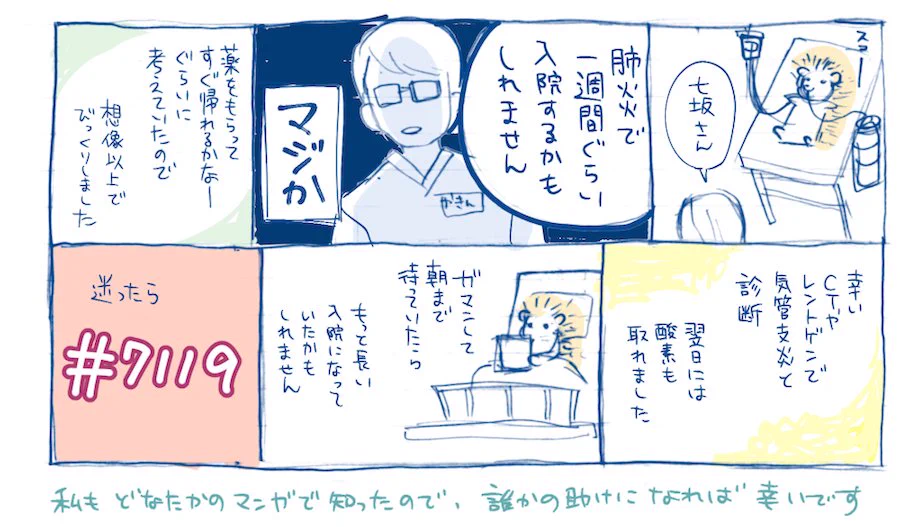 スコー
七坂さん
肺炎で
一週間ぐらい
入院するかも
しれません
かきん
マジか
薬をもらって
すぐ帰れるかなー
ぐらいに
考えていたので
想像以上で
びっくりしました
幸い
CTや
レントゲンで
気管支炎と
診断
翌日には
酸素も
取れました
ガマンして
朝まで
待っていたら
もっと長い
入院になって
いたかも
しれません
迷ったら
#7119
私も どなたかのマンガで知ったので、誰かの助けになれば幸いです